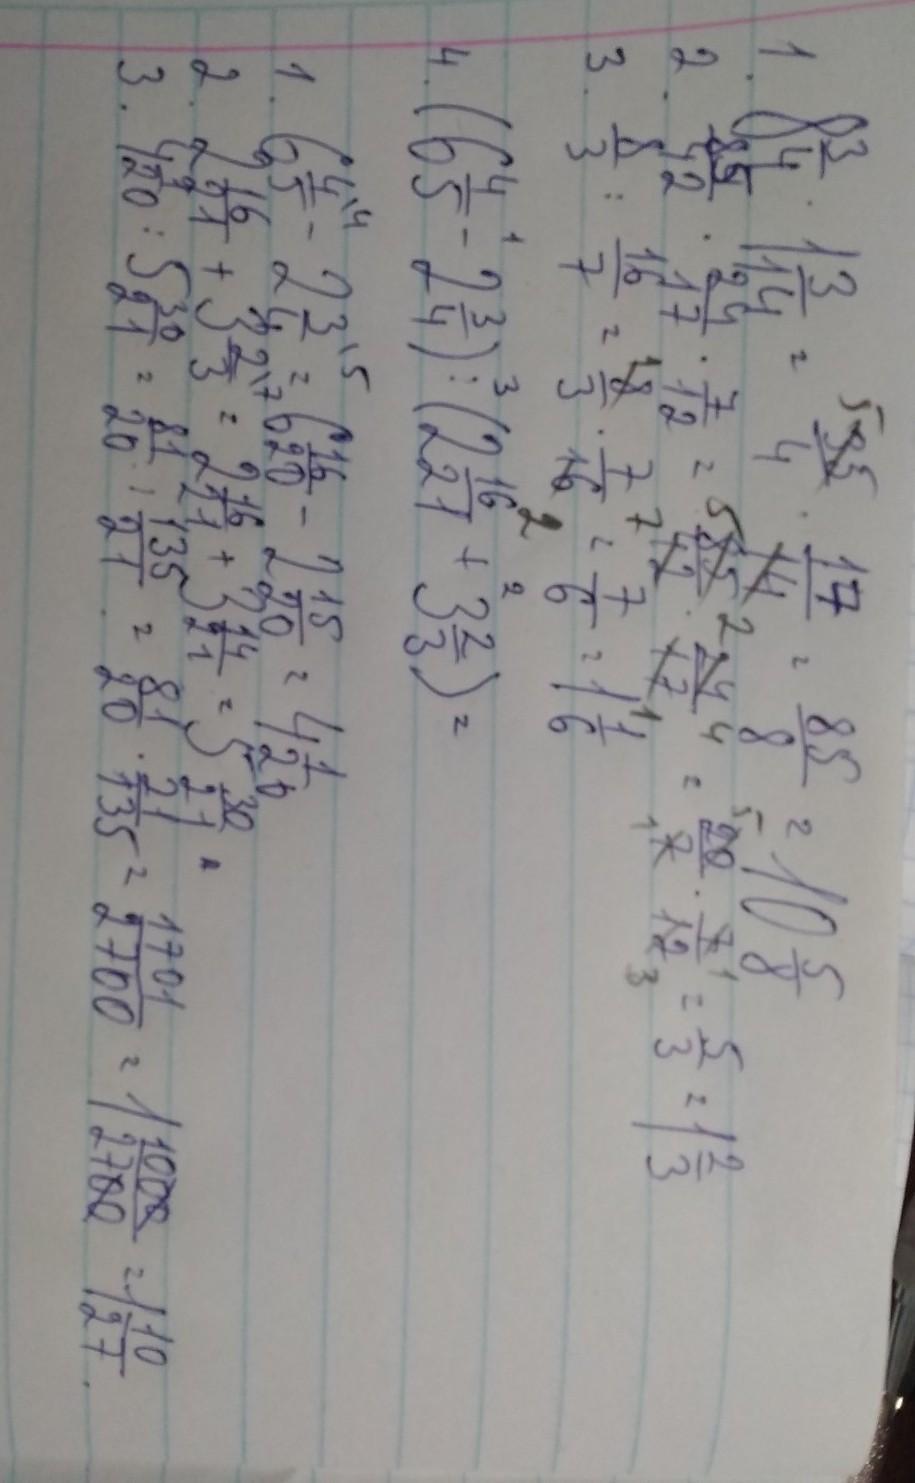 1. 8 3/4 · 1 3/14 = 35/4 · 17/14 = 85/8 = 10 5/8
2. 85/42 · 24/17 · 7/12 = 85/42 · 24/17 = 20/7 · 7/12 = 5/3 = 1 2/3
3. 8/3 : 16/7 = 8/3 · 7/16 = 7/6 = 1 1/6
4. (6 4/5 - 2 3/4) : (2 16/21 + 3 2/3) =
1. 6 4/5 - 2 3/4 = 6 16/20 - 2 15/20 = 4 1/20
2. 2 16/21 + 3 2/3 = 2 16/21 + 3 14/21 = 5 30/21
3. 4 1/20 : 5 30/21 = 81/20 : 135/21 = 81/20 · 21/135 = 1701/2700 = 1 1000/2700 = 1 10/27.